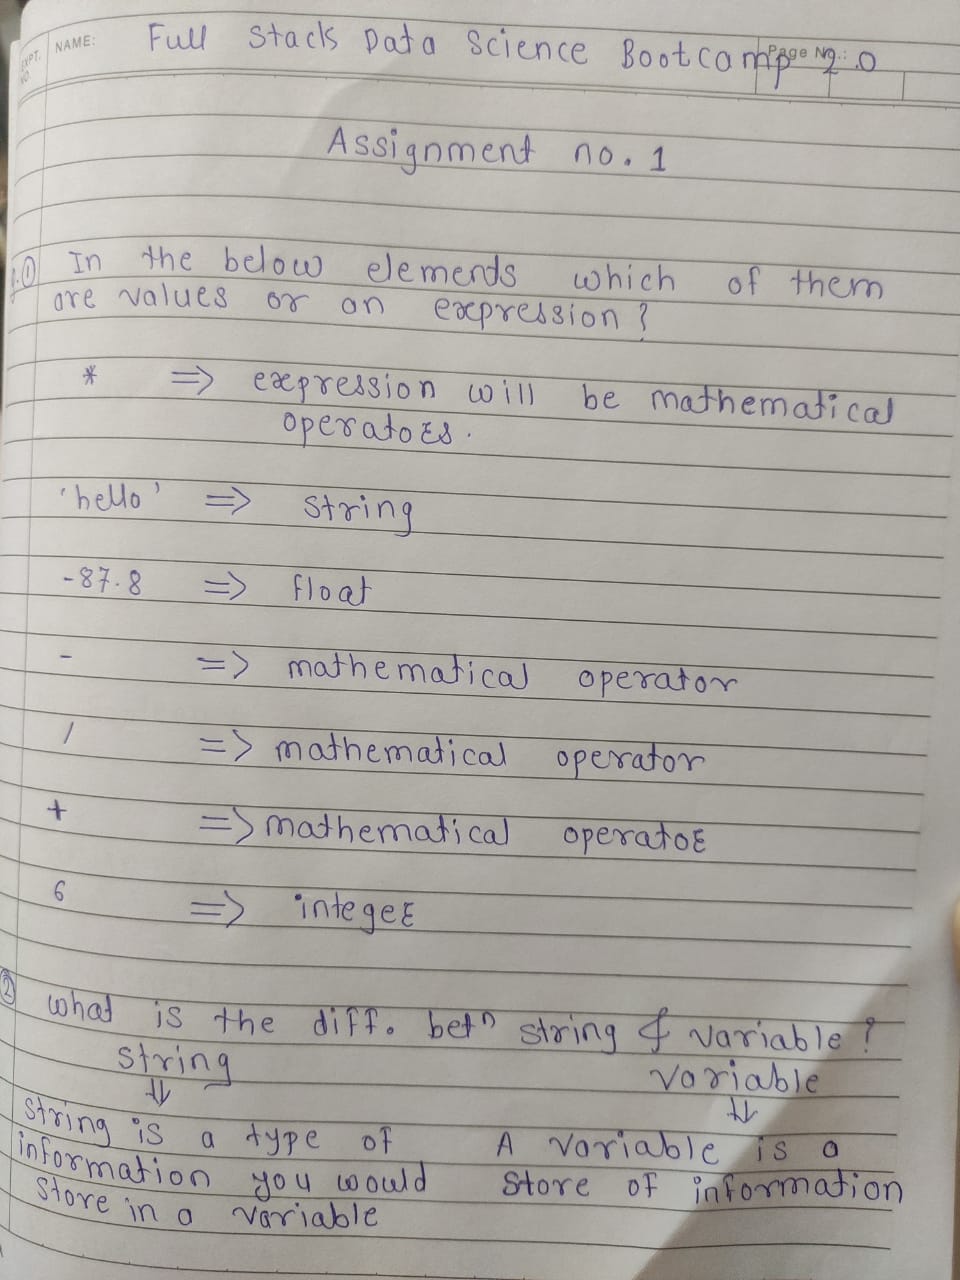 EXPT. NO. NAME: Full Stack Data Science Bootcamp 2.0
Page No.:
Assignment no. 1
Q.① In the below elements which of them
are values or an expression?
* => expression will be mathematical
operators.
'hello' => string
-87.8 => float
- => mathematical operator
/ => mathematical operator
+ => mathematical operator
6 => integer
② What is the diff. betn string & variable?
string
variable
⇓
⇓
string is a type of
information you would
store in a variable
A variable is a
store of information